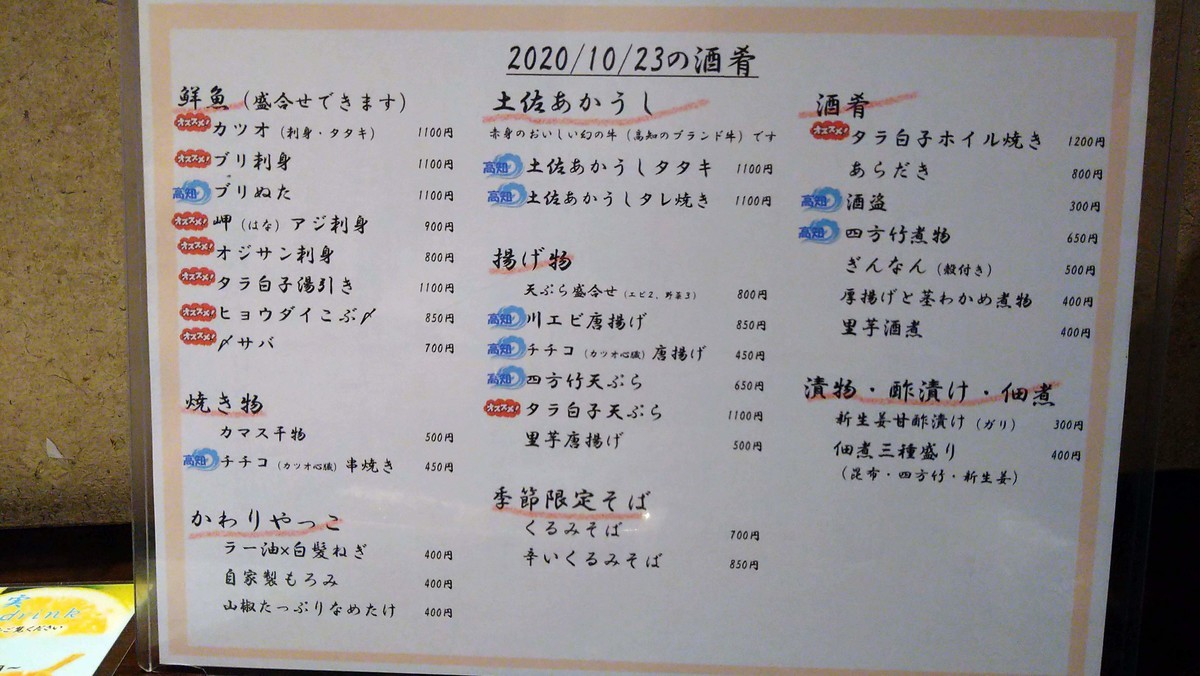 2020/10/23の酒肴
鮮魚（盛合せできます）
オススメ！ カツオ（刺身・タタキ） 1100円
オススメ！ ブリ刺身 1100円
高知 ブリぬた 1100円
オススメ！ 岬（はな）アジ刺身 900円
オススメ！ オジサン刺身 800円
オススメ！ タラ白子湯引き 1100円
オススメ！ ヒョウダイこぶ〆 850円
オススメ！ 〆サバ 700円
焼き物
カマス干物 500円
高知 チチコ（カツオ心臓）串焼き 450円
かわりやっこ
ラー油×白髪ねぎ 400円
自家製もろみ 400円
山椒たっぷりなめたけ 400円
土佐あかうし
赤身のおいしい幻の牛（高知のブランド牛）です
高知 土佐あかうしタタキ 1100円
高知 土佐あかうしタレ焼き 1100円
揚げ物
天ぷら盛合せ（エビ2、野菜3） 800円
高知 川エビ唐揚げ 850円
高知 チチコ（カツオ心臓）唐揚げ 450円
高知 四方竹天ぷら 650円
オススメ！ タラ白子天ぷら 1100円
里芋唐揚げ 500円
季節限定そば
くるみそば 700円
辛いくるみそば 850円
酒肴
オススメ！ タラ白子ホイル焼き 1200円
あらだき 800円
高知 酒盗 300円
高知 四方竹煮物 650円
ぎんなん（殻付き） 500円
厚揚げと茎わかめ煮物 400円
里芋酒煮 400円
漬物・酢漬け・佃煮
新生姜甘酢漬け（ガリ） 300円
佃煮三種盛り 400円
（昆布・四方竹・新生姜）
実
drink
ご覧ください